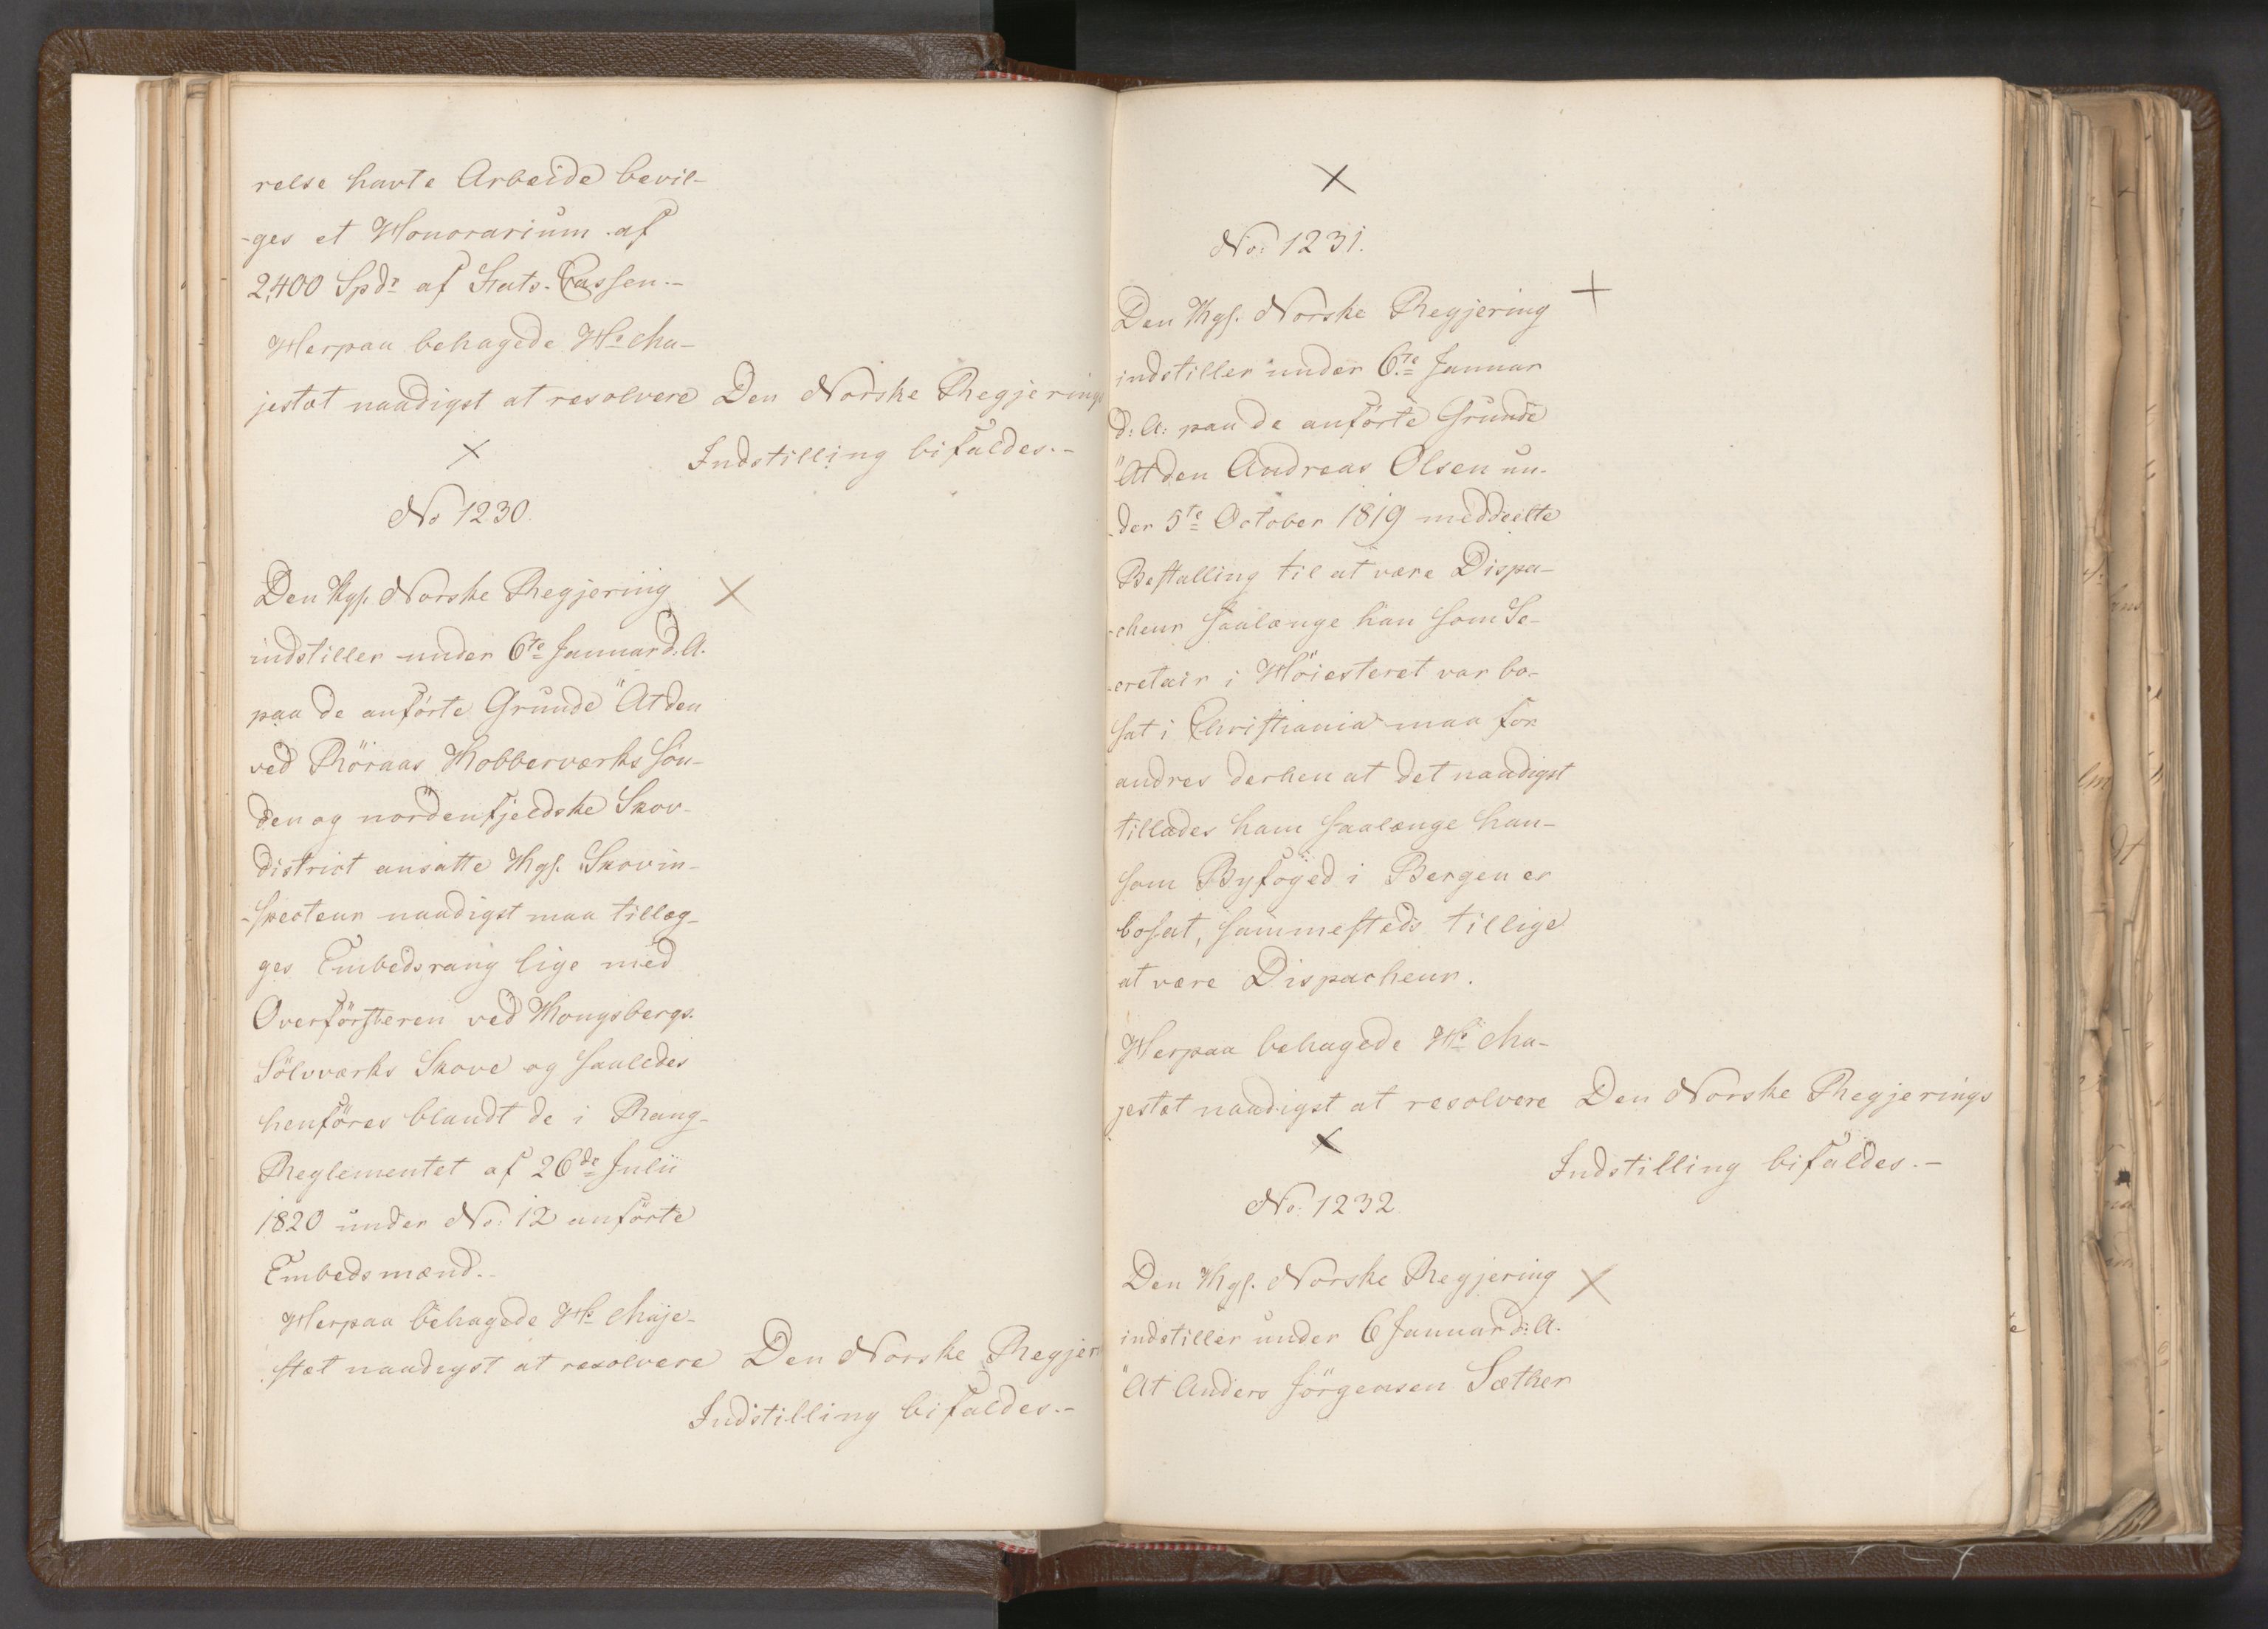 relse havte Arbeide bevil-
-ges et Honorarium af
2,400 Spdr af Stats-Cassen.-
Herpaa behagede Hs Ma-
jestæt naadigst at resolvere Den Norske Regjerings
Indstilling bifaldes.-
×
No 1230.
Den Kgl. Norske Regjering ×
indstiller under 6te Januar d: A.
paa de anförte Grunde "At den
ved Röraas Kobberværks sön-
den og nordenfjeldske Skov-
district ansatte Kgl. Skovin-
-specteur naadigst maa tillæg-
ges Embedsrang lige med
Overförsteren ved Kongsbergs
Sölvværks Skove og saaledes
henföres blandt de i Rang-
Reglementet af 26de Julii
1820 under No: 12 anförte
Embedsmænd.-
Herpaa behagede Hs Maje-
stæt naadigst at resolvere Den Norske Regjer
Indstilling bifaldes.-
×
No: 1231.
Den Kgl. Norske Regjering +
indstiller under 6te Januar
d: A: paa de anförte Grunde
"At den Andreas Olsen un-
-der 5te October 1819 meddeelte
Bestalling til at være Dispa-
-cheur saalænge han som Se-
-cretair i Höiesteret var bo-
sat i Christiania maa for
andres derhen at det naadigst
tillades ham saalænge han-
som Byfoged i Bergen er
bosat, sammesteds tillige
at være Dispacheur.
Herpaa behagede Hs Ma-
jestæt naadigst at resolvere Den Norske Regjerings
Indstilling bifaldes.-
×
No: 1232
Den Kgl. Norske Regjering ×
indstiller under 6 Januar d: A.
"At Anders Jörgensen Sæther